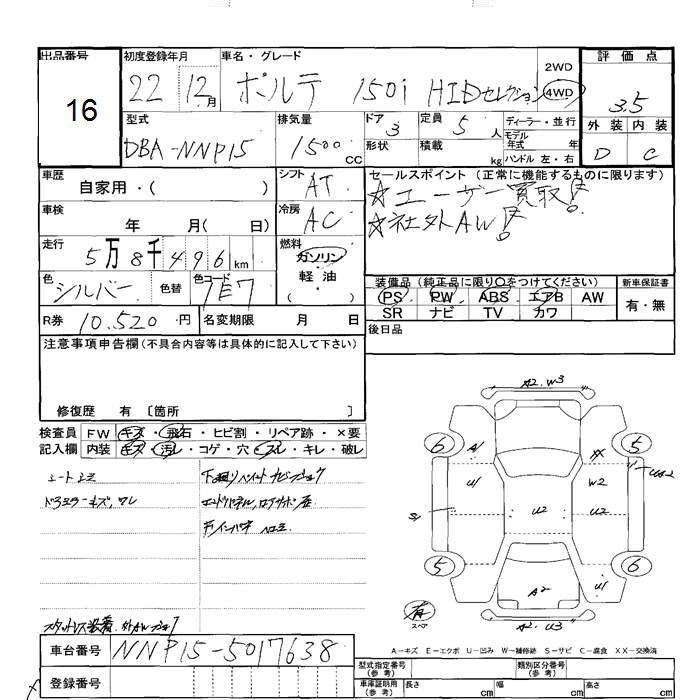 出品番号 初度登録年月 車名・グレード 評価点
16 22 12月 ポルテ 150i HIDセレクション 2WD 4WD 3.5
型式 排気量 ドア 3 定員 5人 ディーラー・並行 外装 内装
DBA-NNP15 1500cc 形状 積載 kg モデル年式 年 ハンドル 左・右 D C
車歴 自家用・( ) シフト AT セールスポイント (正常に機能するものに限ります)
☆ユーザー買取!
車検 年 月( 日) 冷房 AC ☆社外AW!
走行 5万8千496km 燃料 ガソリン 軽油 ( )
色 シルバー 色替 色コード 1E7 装備品 (純正品に限り○をつけてください) 新車保証書
PS PW ABS エアB AW 有・無
SR ナビ TV カワ
R券 10.520円 名変期限 月 日 後日品
注意事項申告欄(不具合内容等は具体的に記入して下さい)
修復歴 有 〔箇所 〕
検査員 FW キズ・飛石・ヒビ割・リペア跡・×要
記入欄 内装 キズ・汚レ・コゲ・穴・スレ・キレ・破レ
A2.W3
6 A1 XX 5
U1 W2
S1 U2 U2
5 A2 U1 6
有 スペア A2.U3
A-キズ E-エクボ U-凹み W-補修跡 S-サビ C-腐食 XX-交換済
車台番号 NNP15-5017638
登録番号
型式指定番号(参考) 類別区分番号(参考)
車庫証明用(参考) 長さ cm 幅 cm 高さ cm